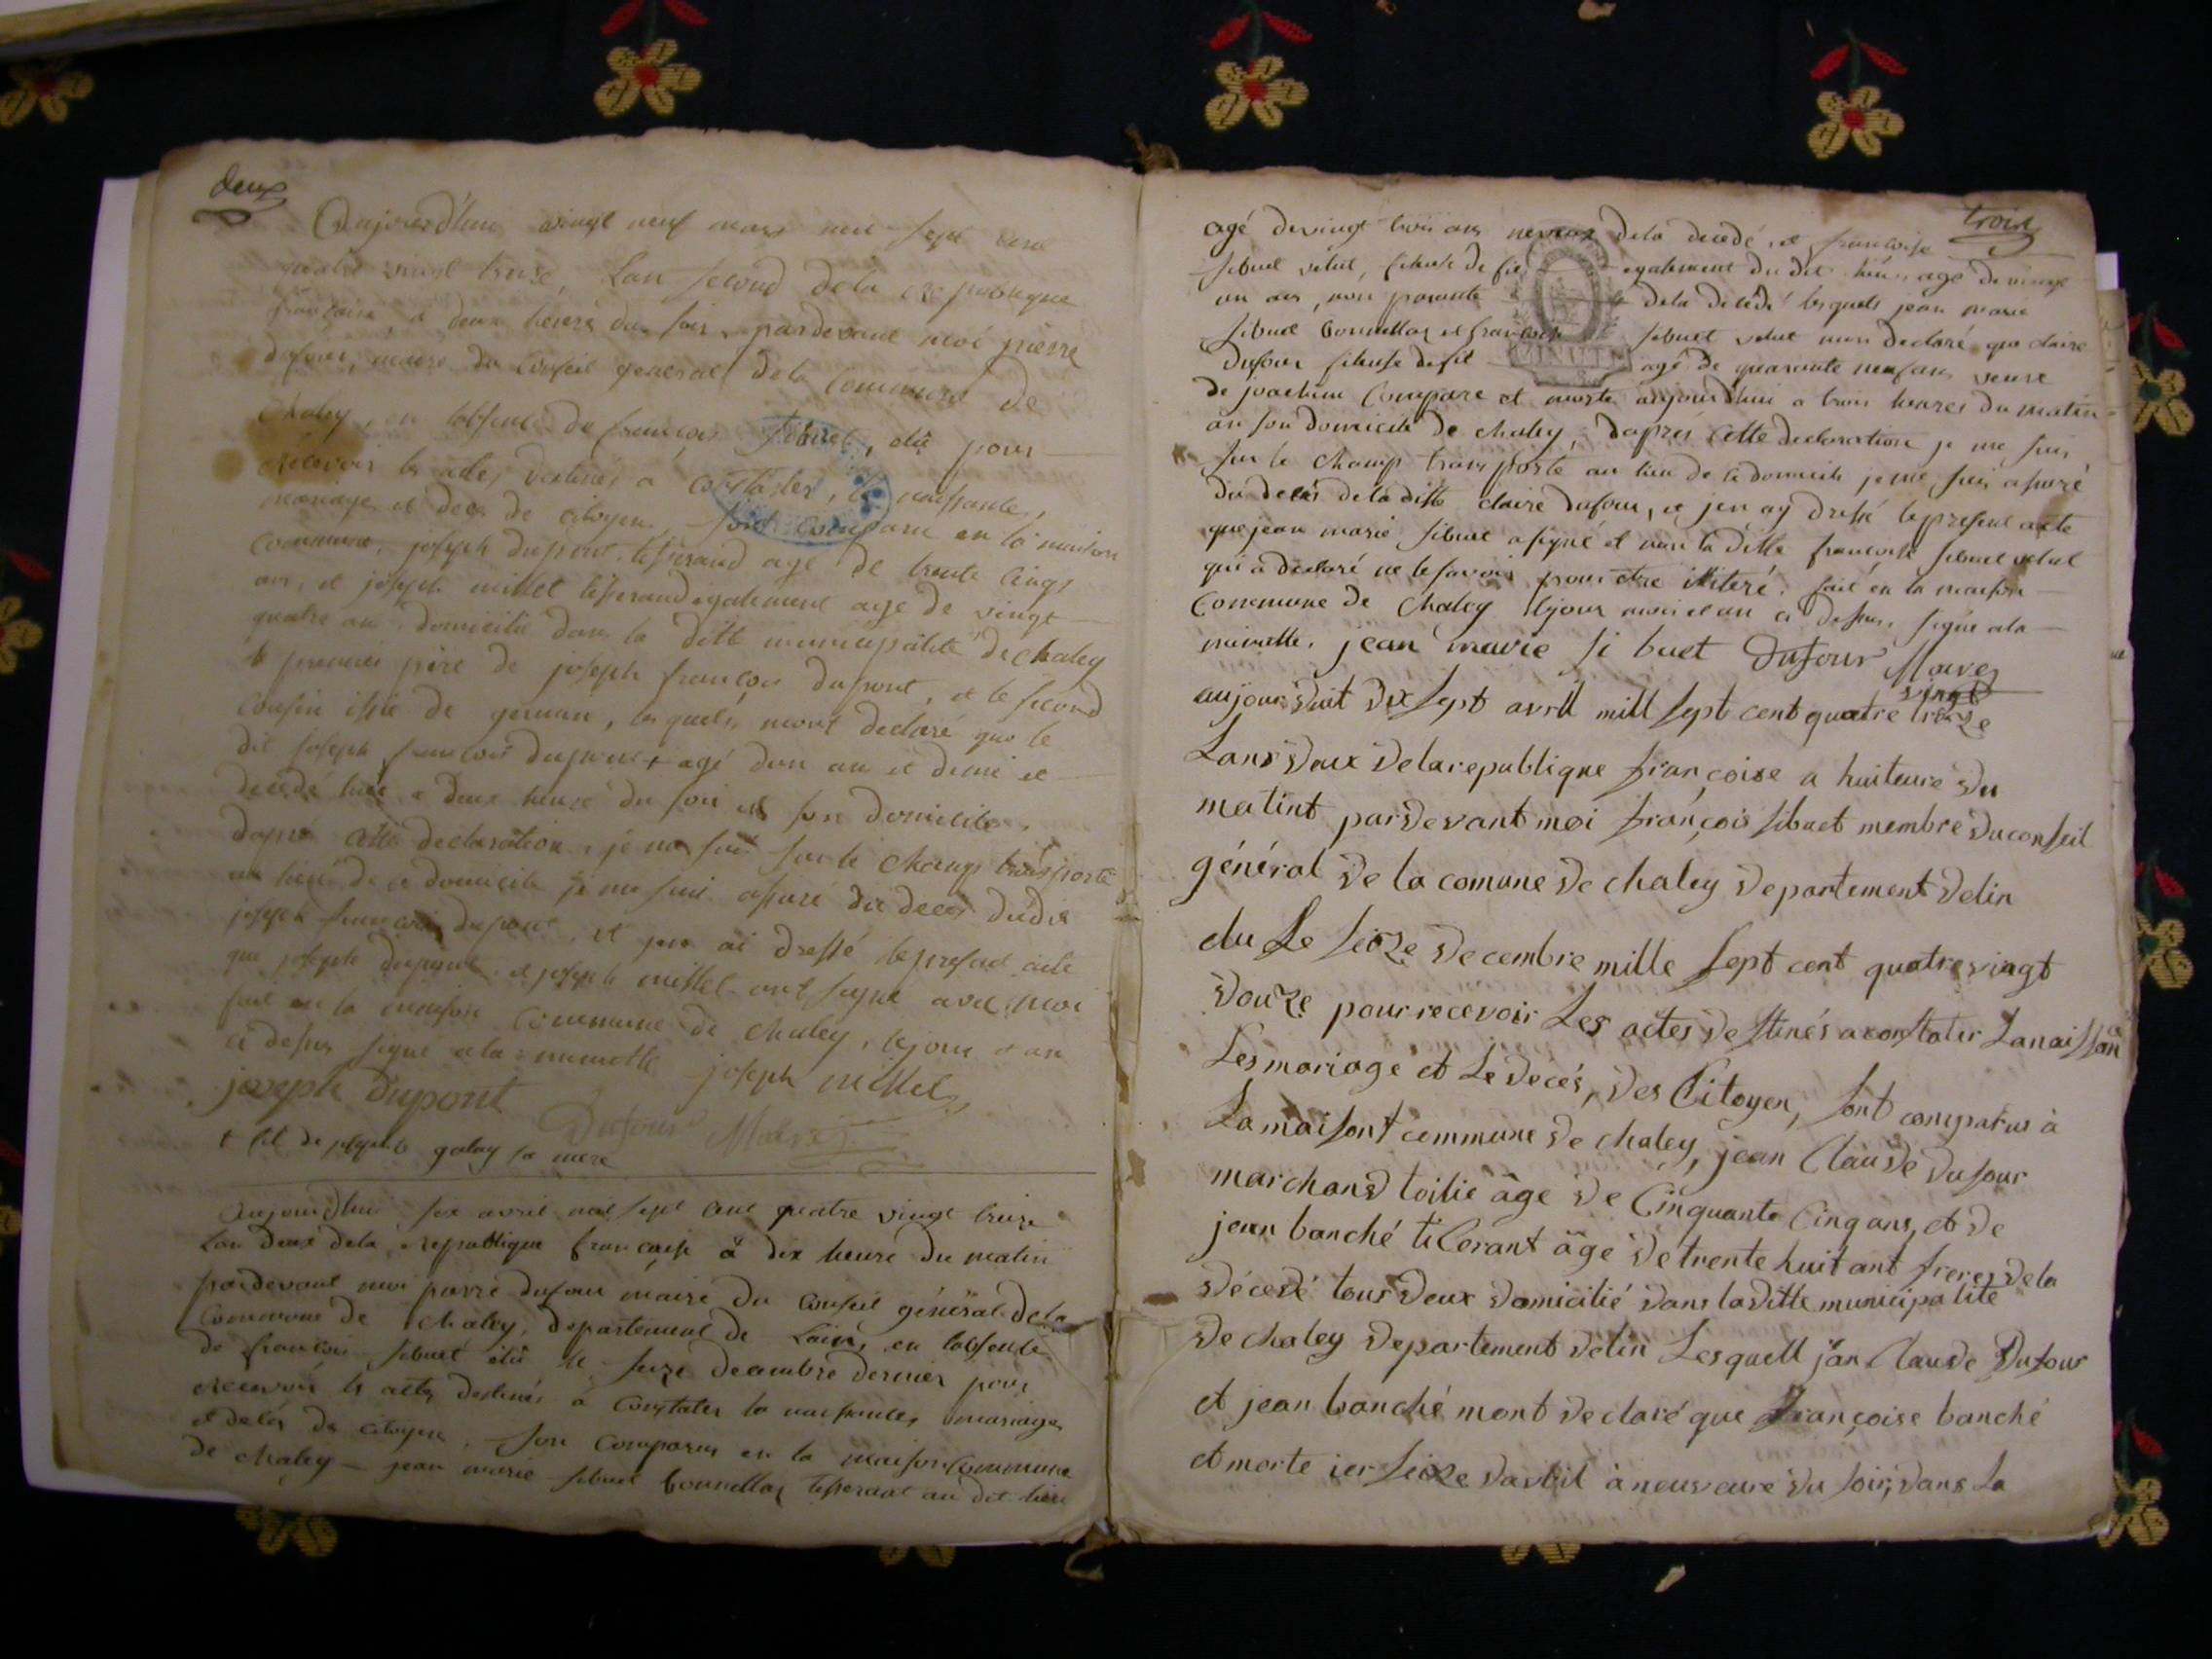 deux
Aujourd'hui vingt neuf mars mil sept cent
quatre vingt treize, Lan second de la republique
francaise, a deux heures du soir pardevant moi pierre
dufour, maire du Conseil general de la Commune de
Chaley, en labsence de francois sibuet, élu pour
recevoir les actes destinés a constater, la naissance,
mariage et deces de citoyens, sont comparu en la maison
Commune, joseph dupont tisserand agé de trente cinq
ans, et joseph millet tisserand egalement age de vingt
quatre an domicilié dans la ditte municipalité de chaley
le premier père de joseph francois dupont, et le second
Cousin issu de germain, les quels mont declaré que le
dit joseph francois dupont + agé dun an et demi et
decedé hier a deux heure du soir en son domicile,
dapres cette declaration, je me suis sur le champ transporté
au lieu de ce domicile je me suis assuré du deces dudit
joseph francois dupont, et jen ai dressé le present acte
que joseph dupont et joseph millet ont signé avec moi
fait en la maison Commune de chaley, le jour et an
ci dessus signé a la minutte joseph millet
joseph Dupont
Dufour Maire
+ fil de galay sa mere
Aujourdhui six avril mil sept cent quatre vingt treize
Lan deux de la republique francaise à dix heure du matin
pardevant moi pierre dufour maire du Conseil général de la
Commune de chaley, departement de Lain, en labsence
de francois sibuet élu le seize decembre dernier pour
recevoir les actes destinés à constater la naissances, mariages
et deces de citoyens, son comparus en la maison Commune
de chaley – jean marie sibuet bonnellaz tisserant au dit lieu
trois
agé de vingt trois ans neveux de la decedé, et francoise
sibuet velut, fileuse de fil egalement du dit lieu, age de vingt
un ans, non parante de la decédé lesquels jean marie
sibuet bonnellaz et francoise sibuet velut mon declaré que claire
Dufour fileuse de fil agé de quarante neuf ans veuve
de joachim Compare et morte aujourdhui a trois heures du matin
MINUTE
en son domicile de chaley, dapres cette declaration je me suis
sur le champ transporté au lieu de ce domicile je me suis assuré
du deces de la ditte claire dufour, et jen ay dressé le present acte
que jean marie sibuet a signé et non la ditte francoise sibuet velut
qui a declaré ne le savoir pour etre illiteré. fait en la maison
Commune de Chaley le jour mois et an ci dessus signé a la
minutte. jean marie si buet Dufour Maire
aujourduit dix sept avrill mill sept cent quatre vingt treze
Lans deux delarepublique françoise a huiteure du
matint pardevant moi françois sibuet membre du conseil
général de la comune de chaley departement delin
elu Le seize decembre mille sept cent quatrevingt
douze pour recevoir Les actes destinés a constater Lanaissance
Les mariage et Le decés, des Citoyen, sont comparus à
Lamaisont commune de chaley, jean Claude Dufour
marchand toilie âge de Cinquante Cinq ans, et de
jean banché ticerant âge de trente huit ant freres dela
décedé tous deux domicilié dans laditte municipalité
de chaley departement delin Lesquell jan Claude Dufour
et jean banché mont declaré que françoise banché
et morte ier seize davril à neuv eure du soir, dans La